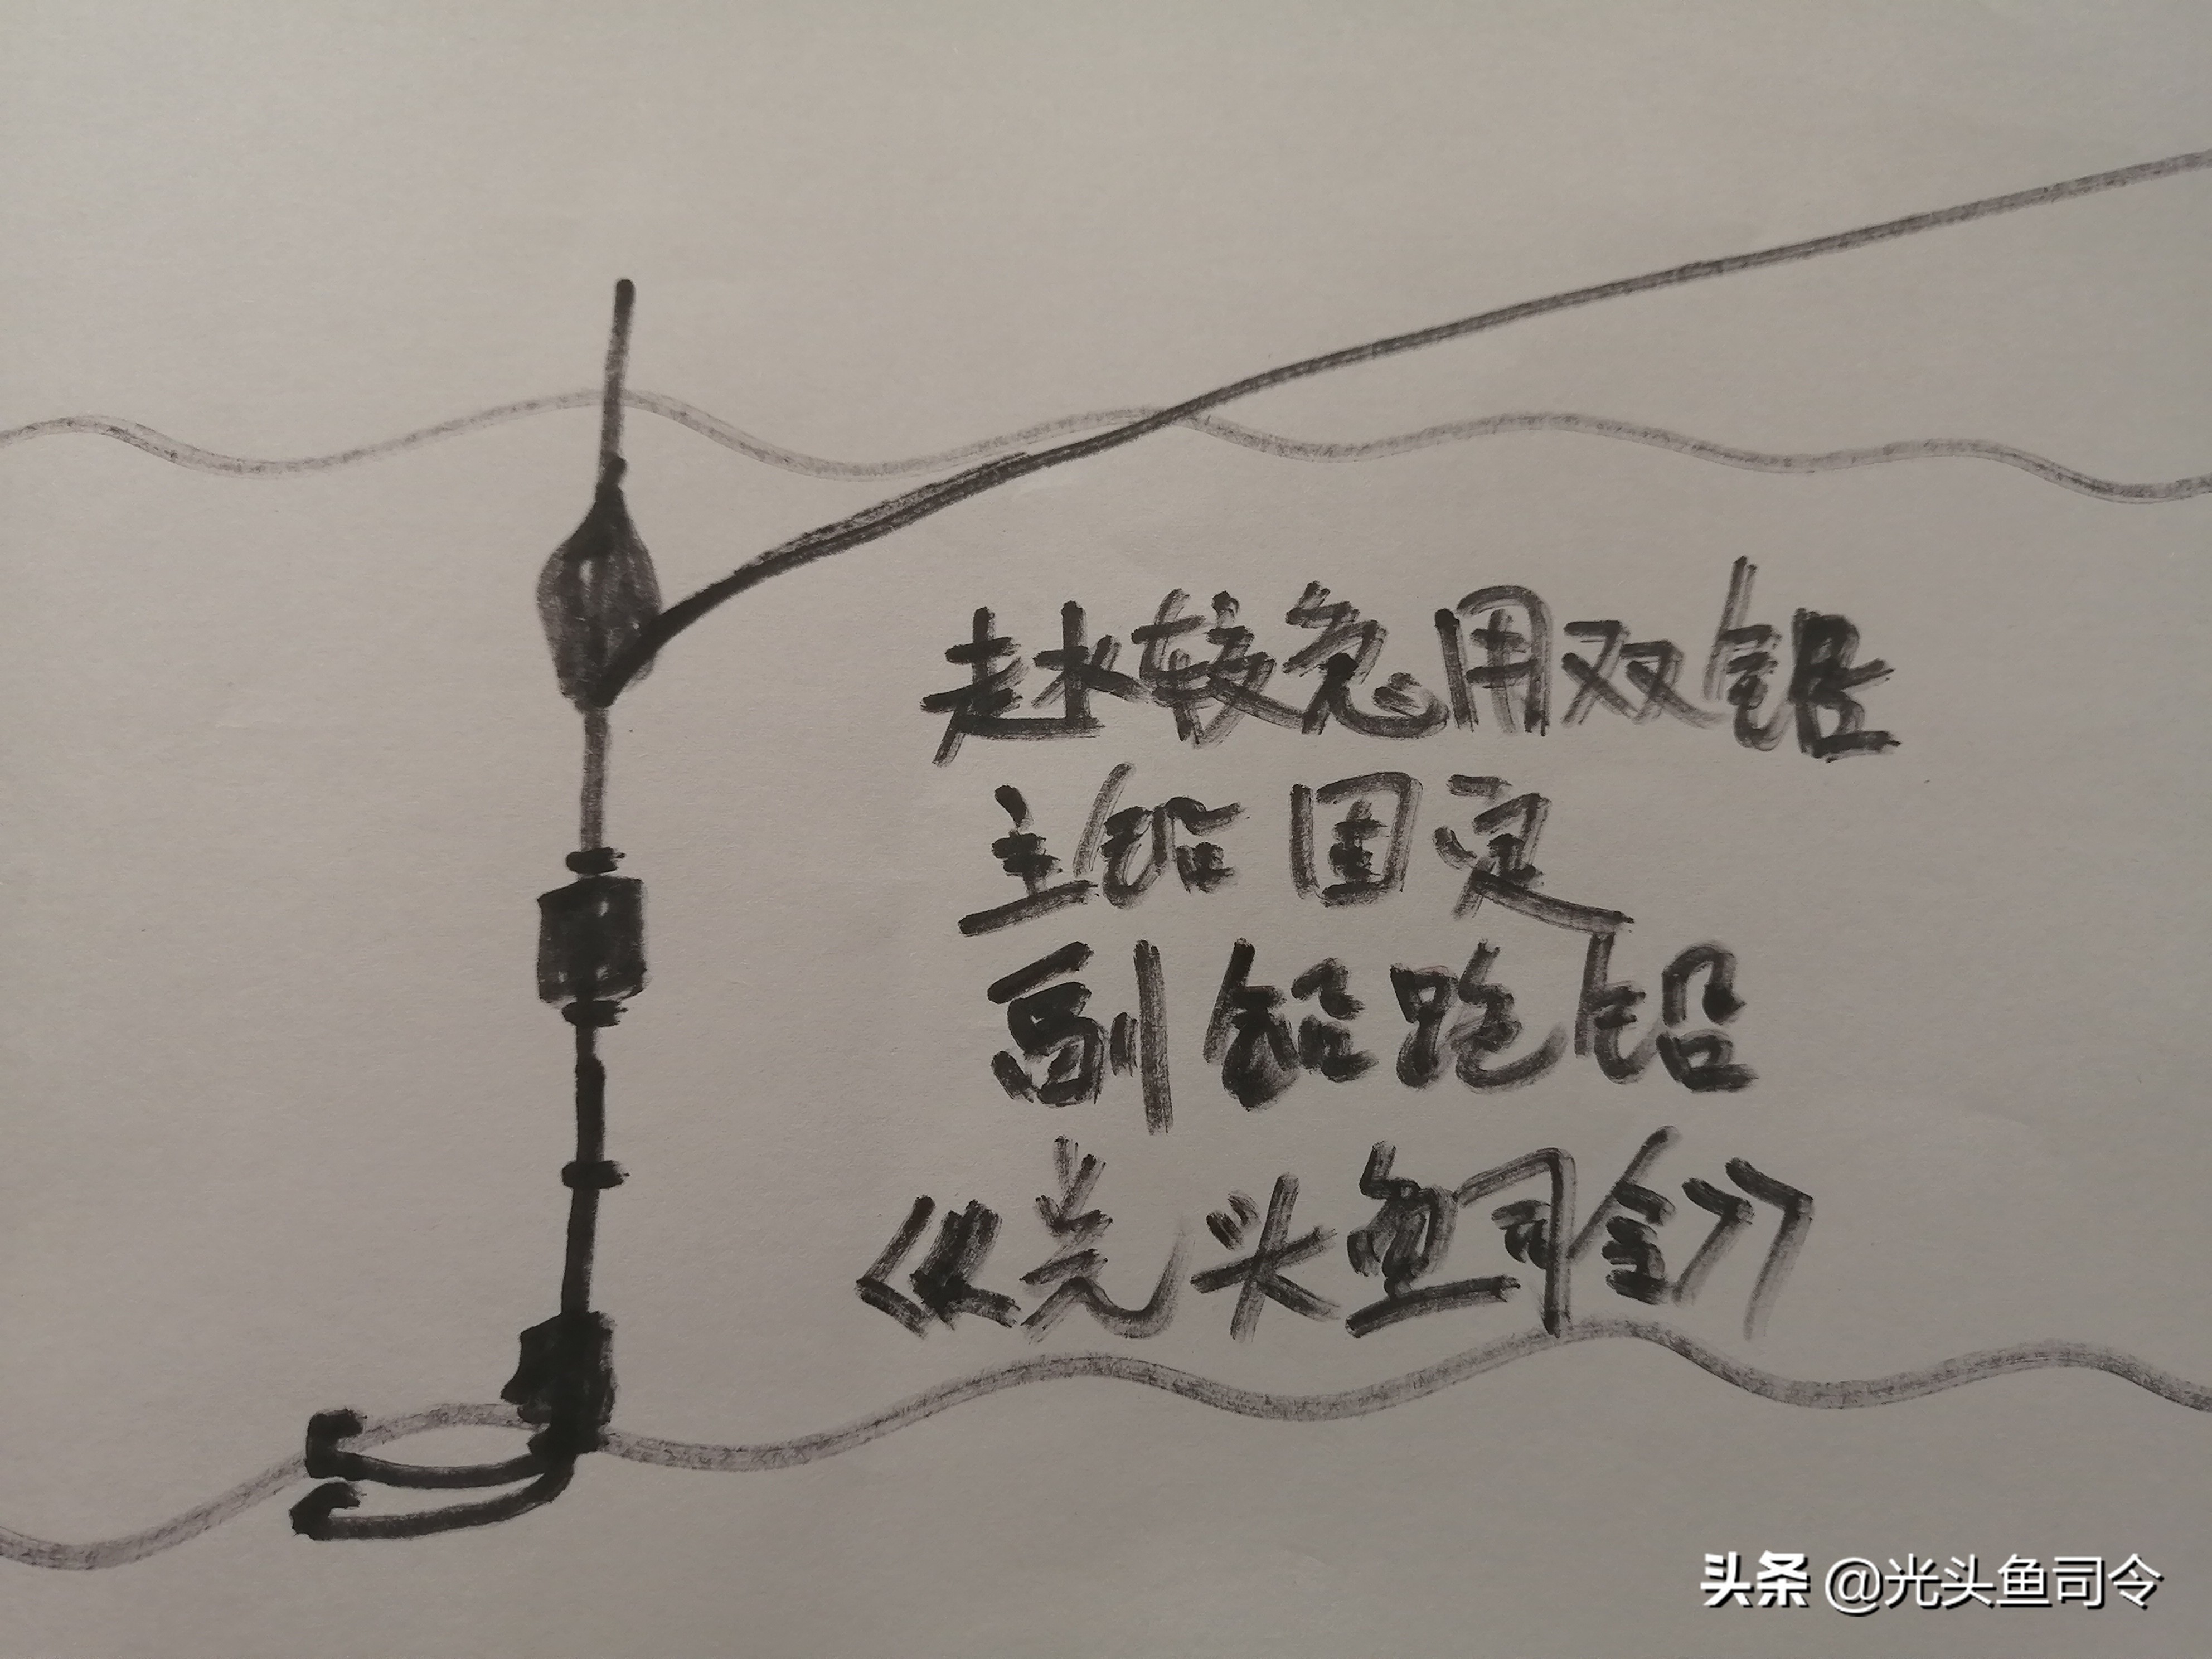 走水较急用双铅
主铅固定
副铅跑铅
《光头鱼司令》
头条 @光头鱼司令